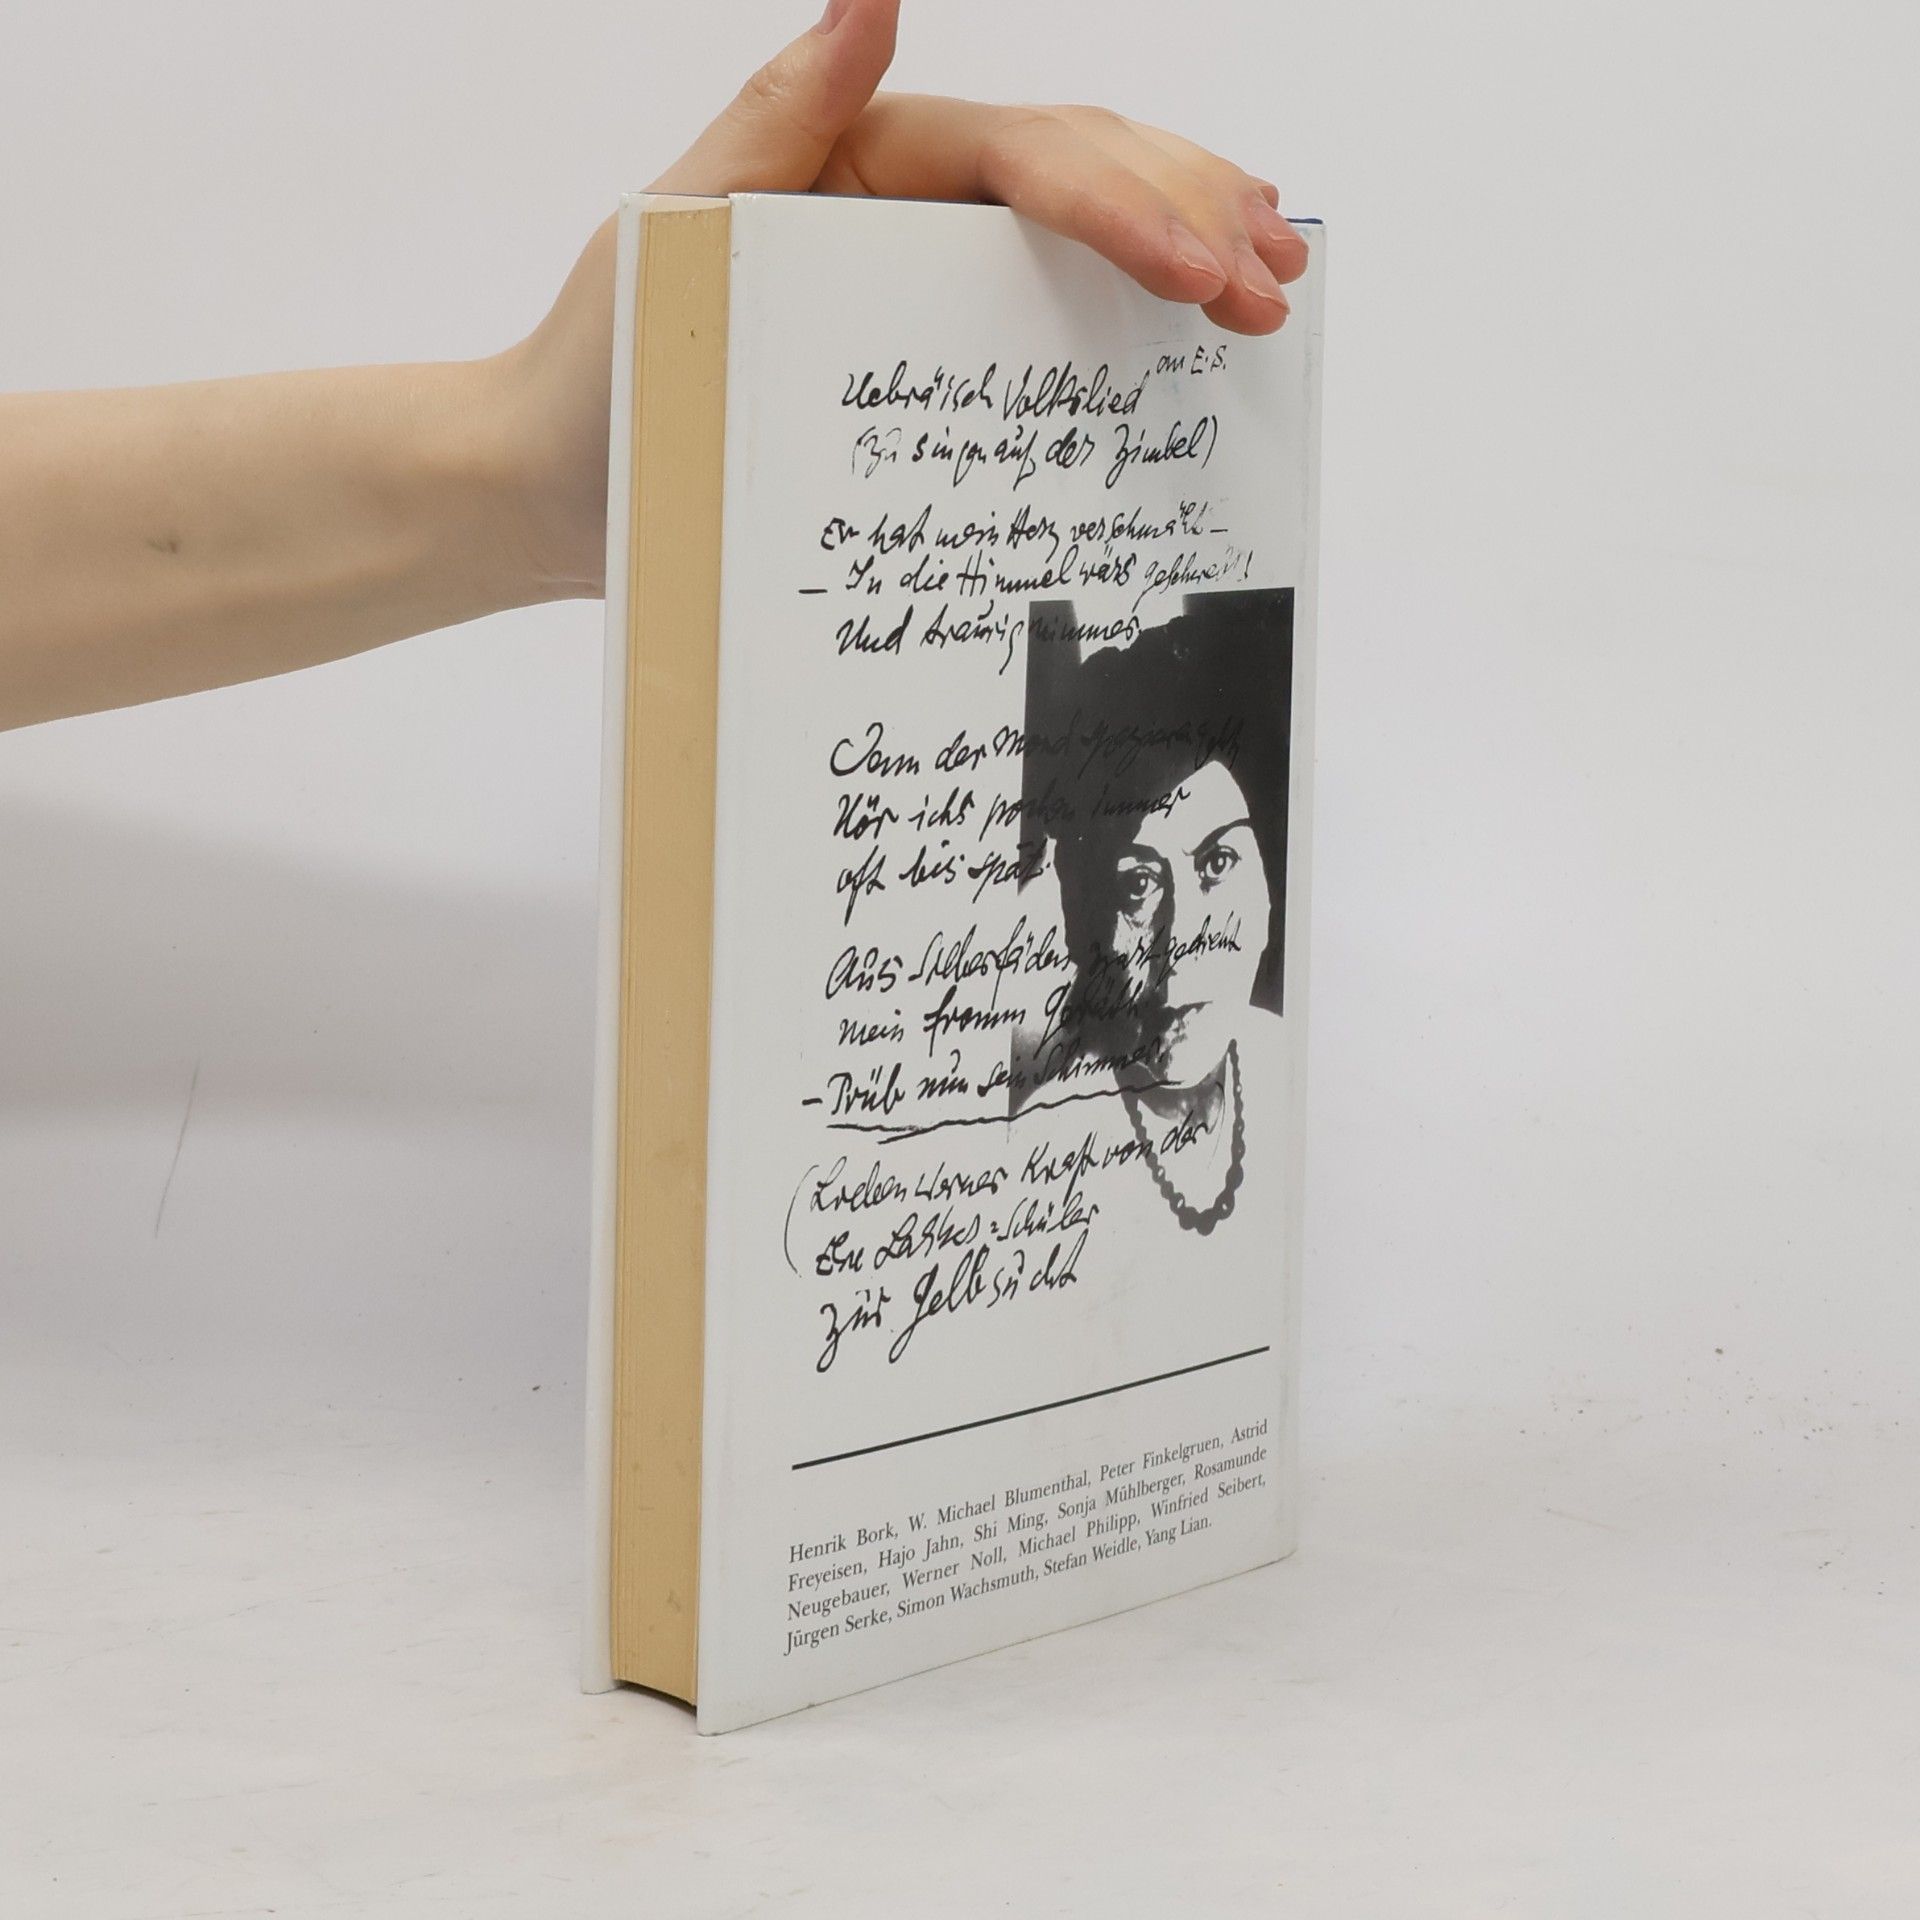 Hebräisch Volkslied an E. S.
(Zu singen auf der Zimbel)
Er hat mein Herz verschmäht –
– In die Himmel wärs geschwebt!
Und traurig immer.
Denn der Mond spazieren geht,
Hör ichs pochen immer
oft bis spät.
Aus Silberfäden zart gedreht
mein fromm Geräth.
– Trüb nun sein Schimmer.
(Lieben Werner Kraft von der
Else Lasker=Schüler
zur Gelbsucht
Henrik Bork, W. Michael Blumenthal, Peter Finkelgruen, Astrid
Freyeisen, Hajo Jahn, Shi Ming, Sonja Mühlberger, Rosamunde
Neugebauer, Werner Noll, Michael Philipp, Winfried Seibert,
Jürgen Serke, Simon Wachsmuth, Stefan Weidle, Yang Lian.